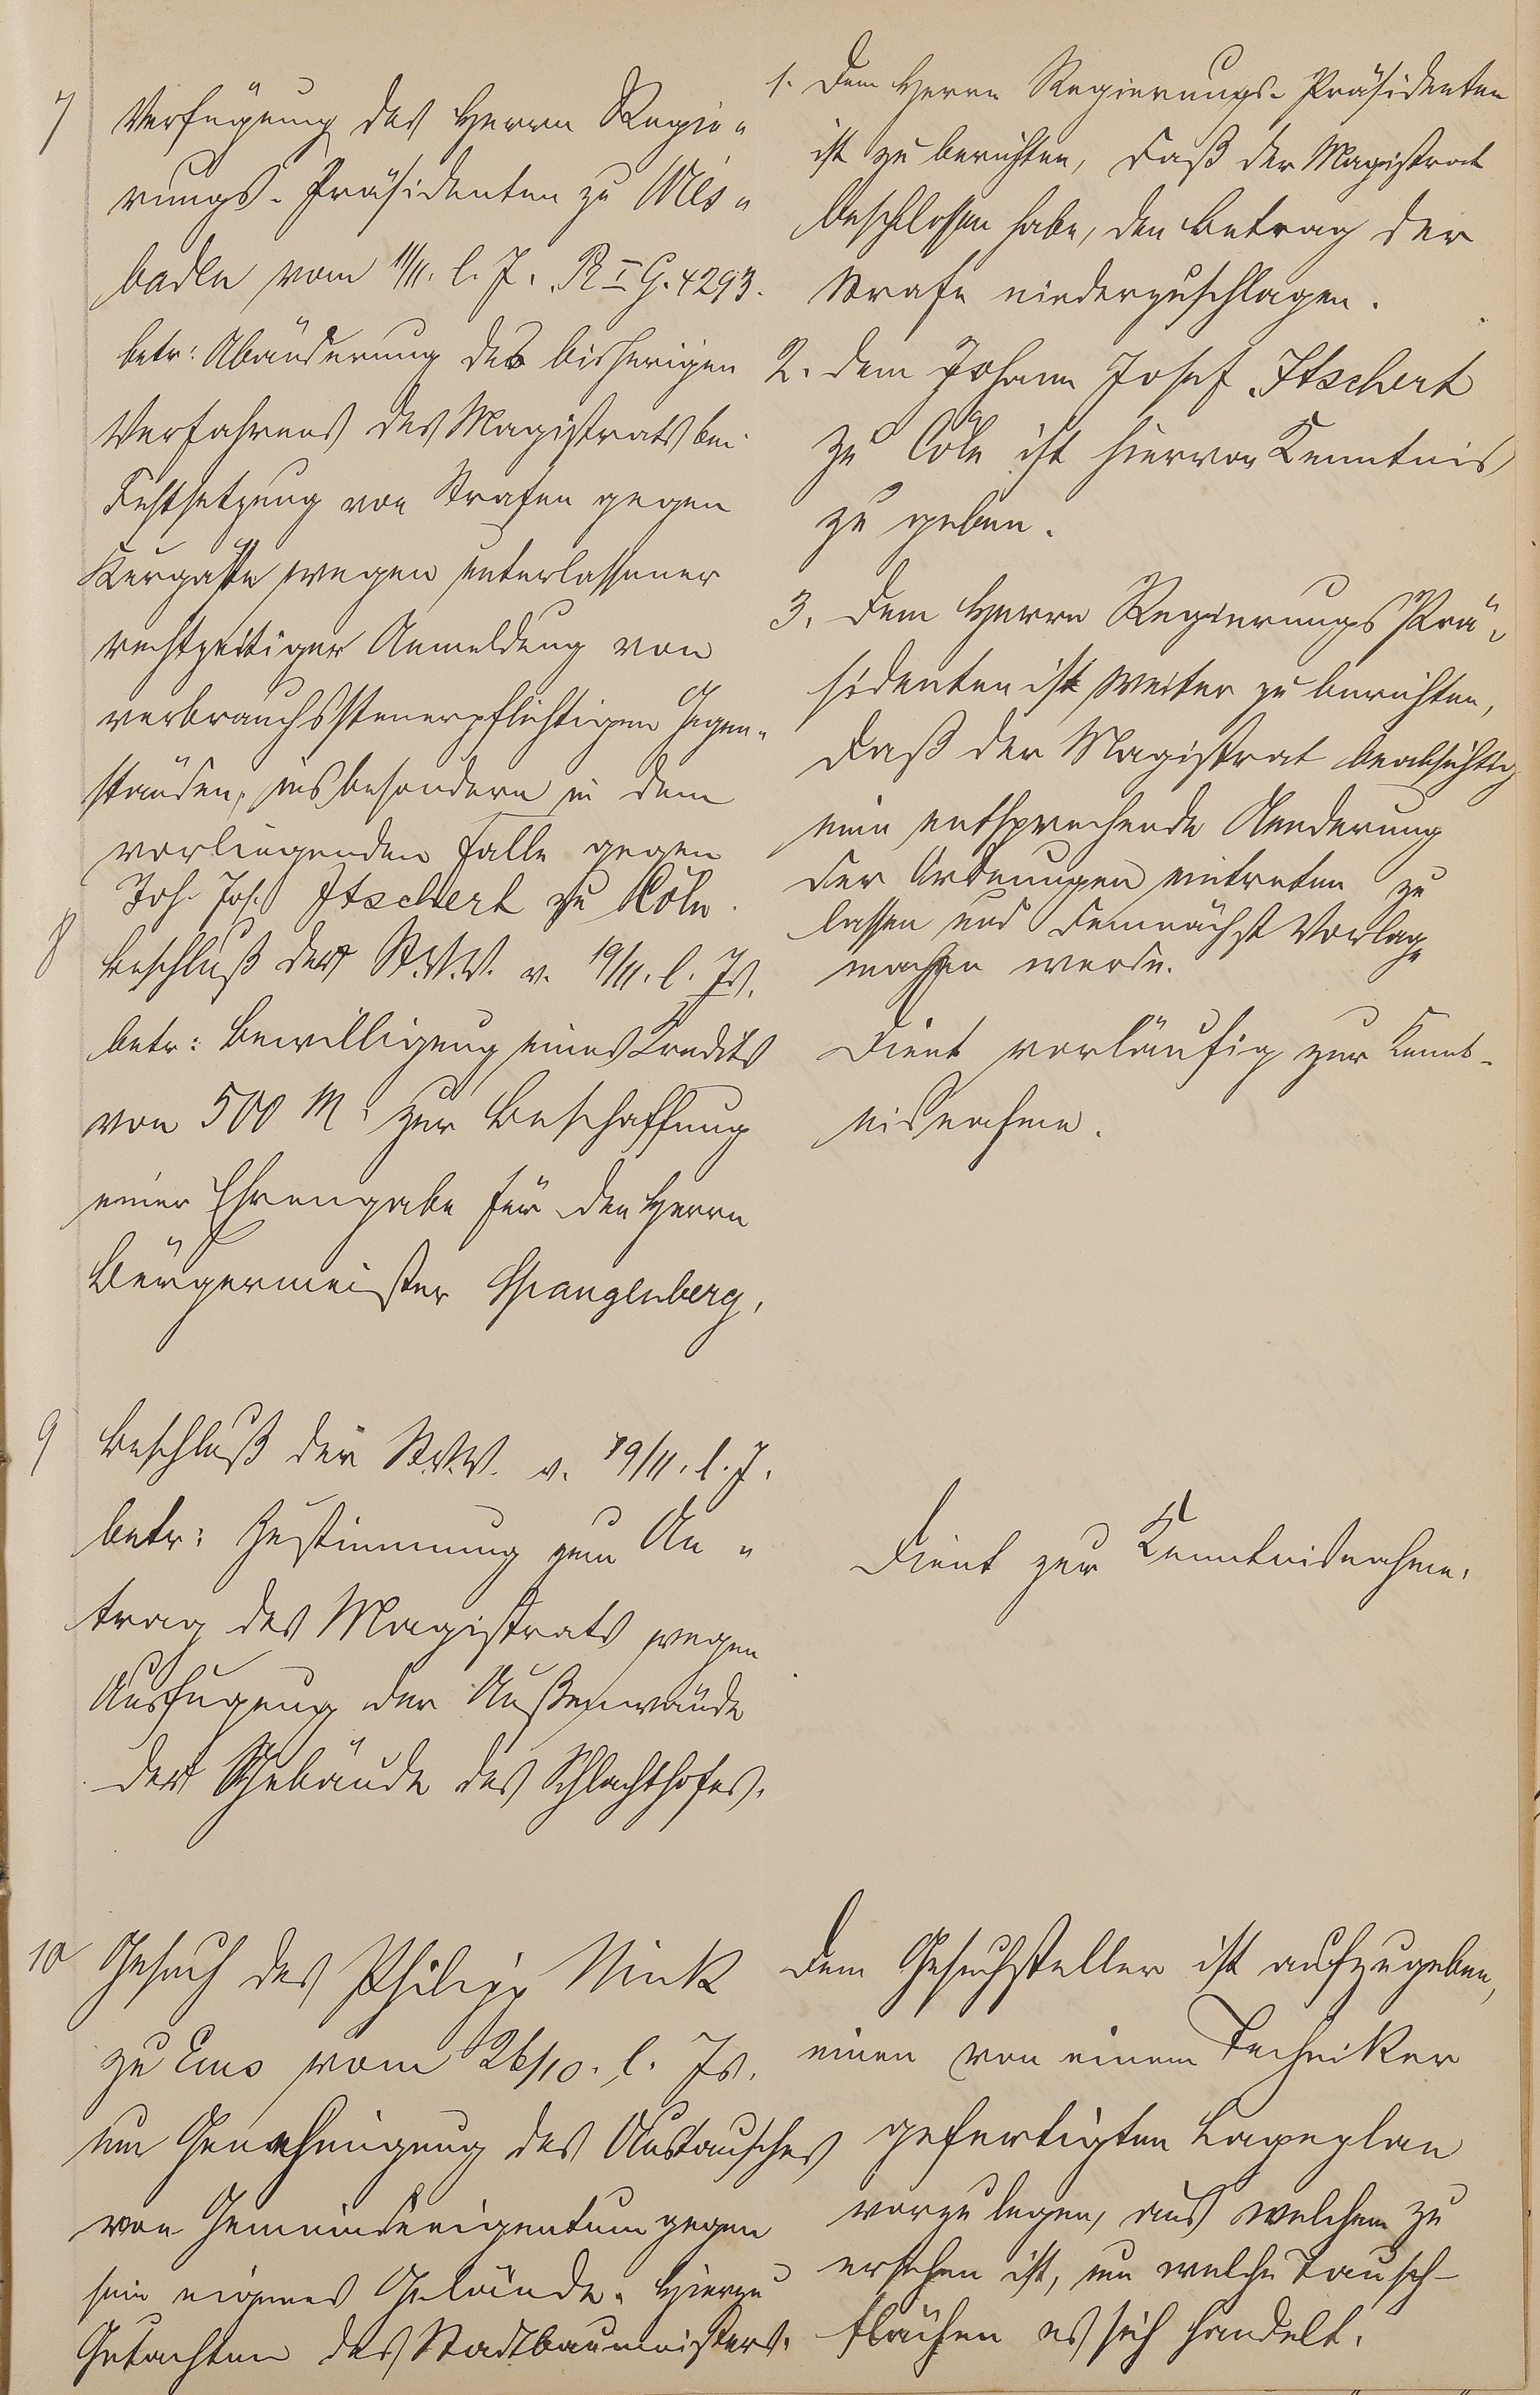 7
Verfügung des Herrn Regie-
rungs-Präsidenten zu Wies-
baden vom 11/11. l. J. R I G. 4293.
betr: Abänderung des bisherigen
Verfahrens des Magistrats bei
Festsetzung von Strafen gegen
Kurgäste wegen unterlassener
rechtzeitiger Anmeldung von
verbrauchssteuerpflichtigen Gegen-
ständen, insbesondere in dem
vorliegenden Falle gegen
Joh. Jos. Itschert zu Cöln.
1. Dem Herrn Regierungs-Präsidenten
ist zu berichten, daß der Magistrat
beschlossen habe, den Betrag der
Strafe niederzuschlagen.
2. Dem Johann Josef Itschert
zu Cöln ist hiervon Kenntnis
zu geben.
3. Dem Herrn Regierungs Prä-
sidenten ist weiter zu berichten,
daß der Magistrat beabsichtig
eine entsprechende Aenderung
der Ordnungen eintreten zu
lassen und demnächst Vorlage
machen werde.
8
Beschluß der St.V.V. v. 19/11. l. Js.
betr: Bewilligung eines Kredits
von 500 M. zur Beschaffung
einer Ehrengabe für den Herrn
Bürgermeister Spangenberg.
Dient vorläufig zur Kennt-
nisnahme.
9
Beschluß der St.V.V. v. 19/11. l. J.
betr: Zustimmung zum An-
trag des Magistrats wegen
Ausfugung der Außenwände
der Gebäude des Schlachthofes.
Dient zur Kenntnisnahme.
10
Gesuch des Philipp Nink
zu Ems vom 26/10. l. Js.
um Genehmigung des Austausches
von Gemeindeeigentum gegen
sein eigenes Gelände. Hierzu
Gutachten des Stadtbaumeisters.
Dem Gesuchsteller ist aufzugeben,
einen von einem Techniker
gefertigten Lageplan
vorzulegen, aus welchem zu
ersehen ist, um welche Tausch-
flächen es sich handelt.